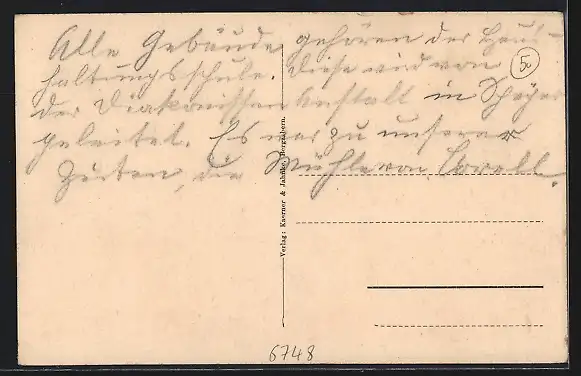 Alle Gebäude gehören der Haus-
haltungsschule. Diese wird von
der Diakonissenanstalt in Speyer
geleitet. Es war zu unserer
Zeiten, die Mühle von
50
Verlag: Kaerner &
6748